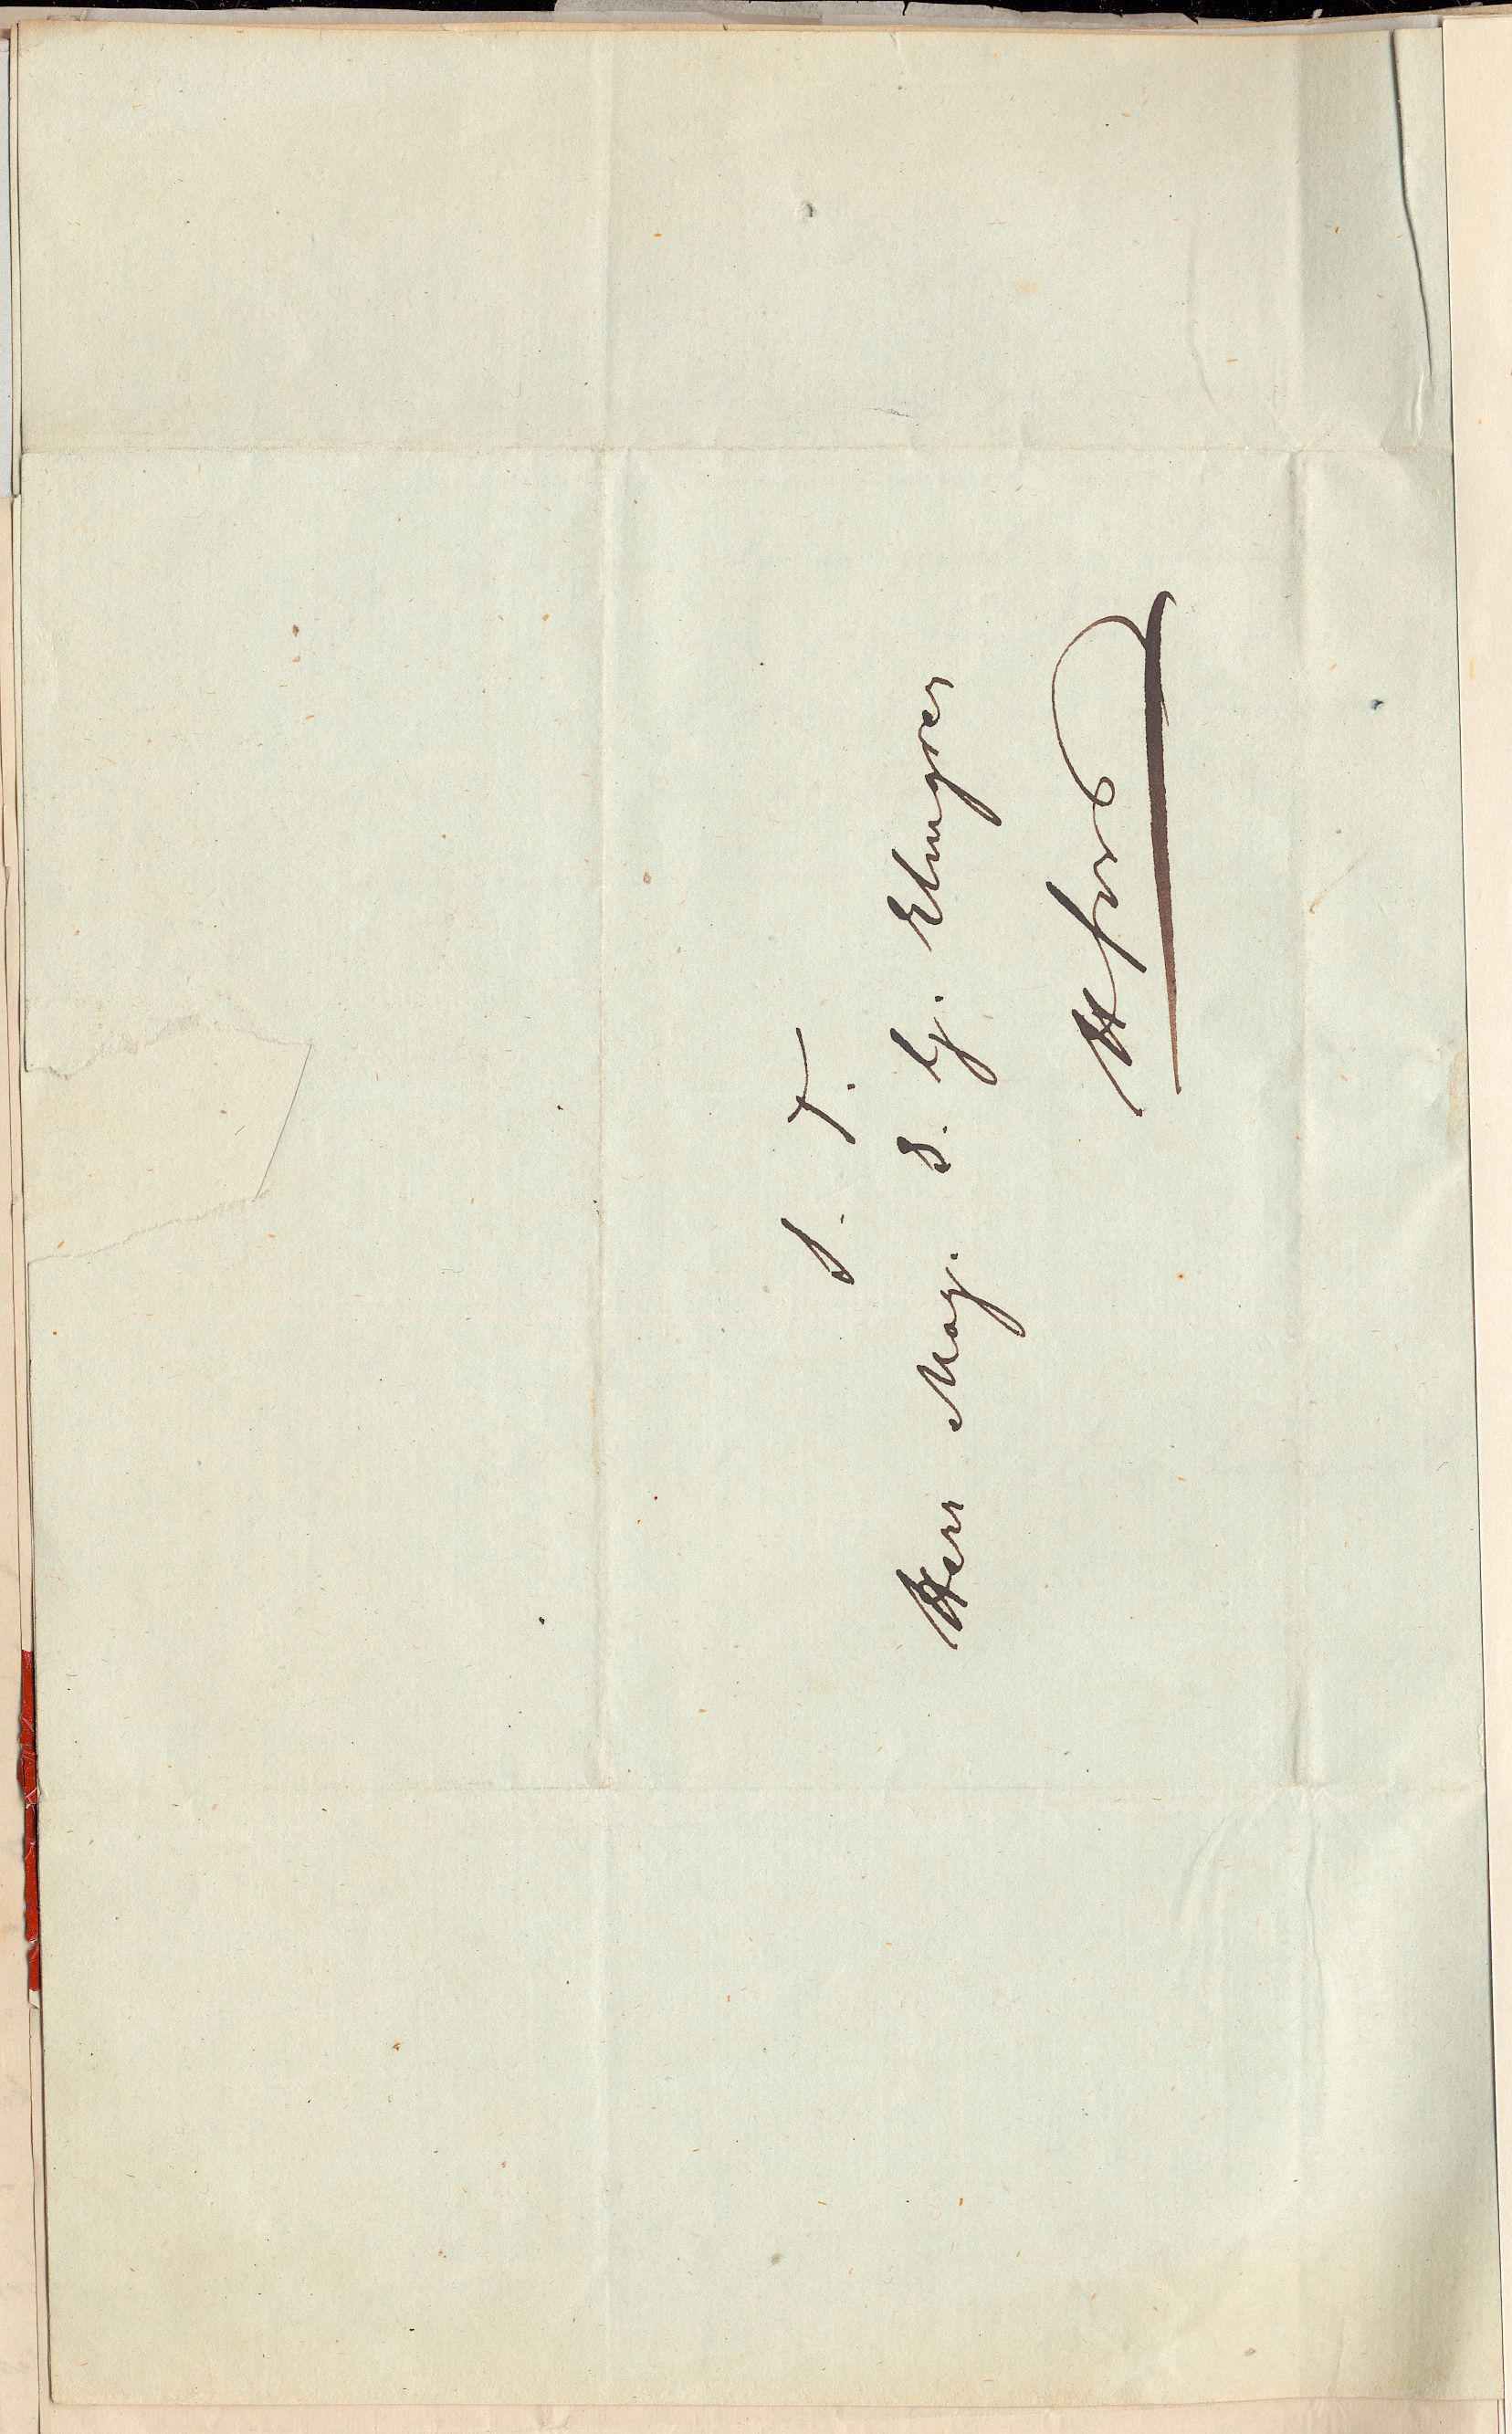 S. T.
Herr Mag. S. G. Elmgren
H fors